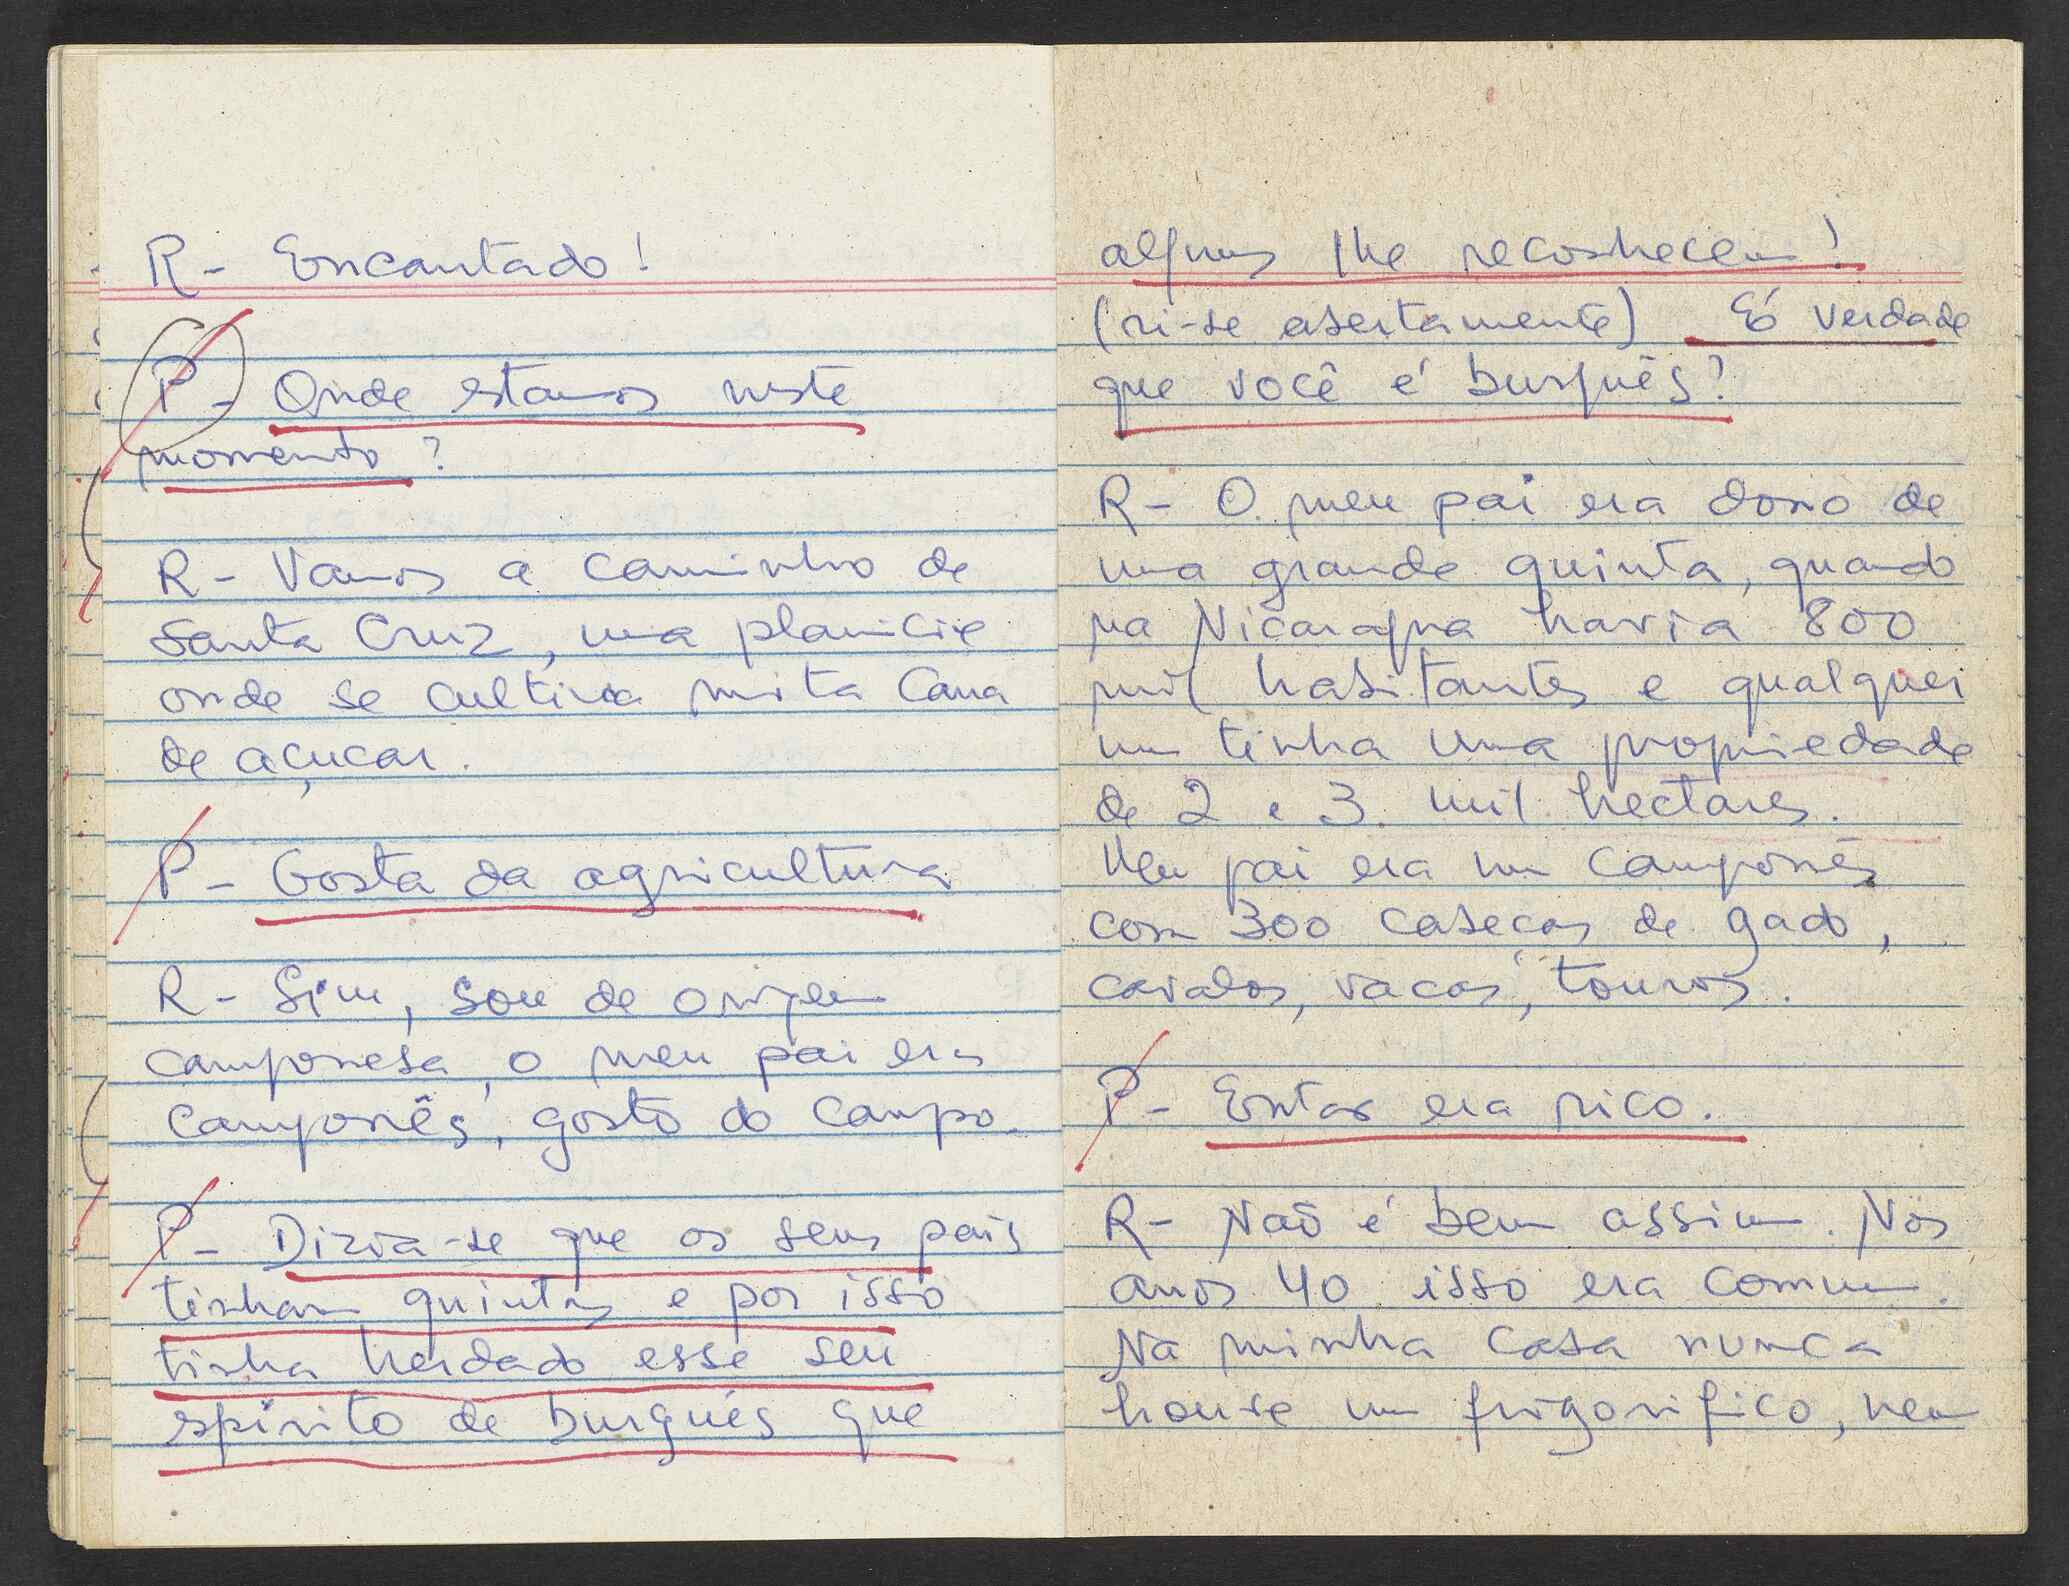 R - Encantado!
P - Onde estamos neste
momento?
R - Vamos a caminho de
Santa Cruz, uma planicie
onde se cultiva muita cana
de açucar.
P - Gosta da agricultura
R - Sim, sou de origem
camponesa, o meu pai era
camponês, gosto do campo.
P - Dizia-se que os seus pais
tinham quintas e por isso
tinha herdado esse seu
espirito de burguês que
alguns lhe reconhecem!
(ri-se abertamente) É verdade
que você é burguês?
R - O meu pai era dono de
uma grande quinta, quando
na Nicaragua havia 800
mil habitantes e qualquer
um tinha uma propriedade
de 2 e 3 mil hectares.
Meu pai era um camponês
com 300 cabeças de gado,
cavalos, vacas, touros.
P - Então era rico.
R - Não é bem assim. Nos
anos 40 isso era comum.
Na minha casa nunca
houve um frigorifico, nem